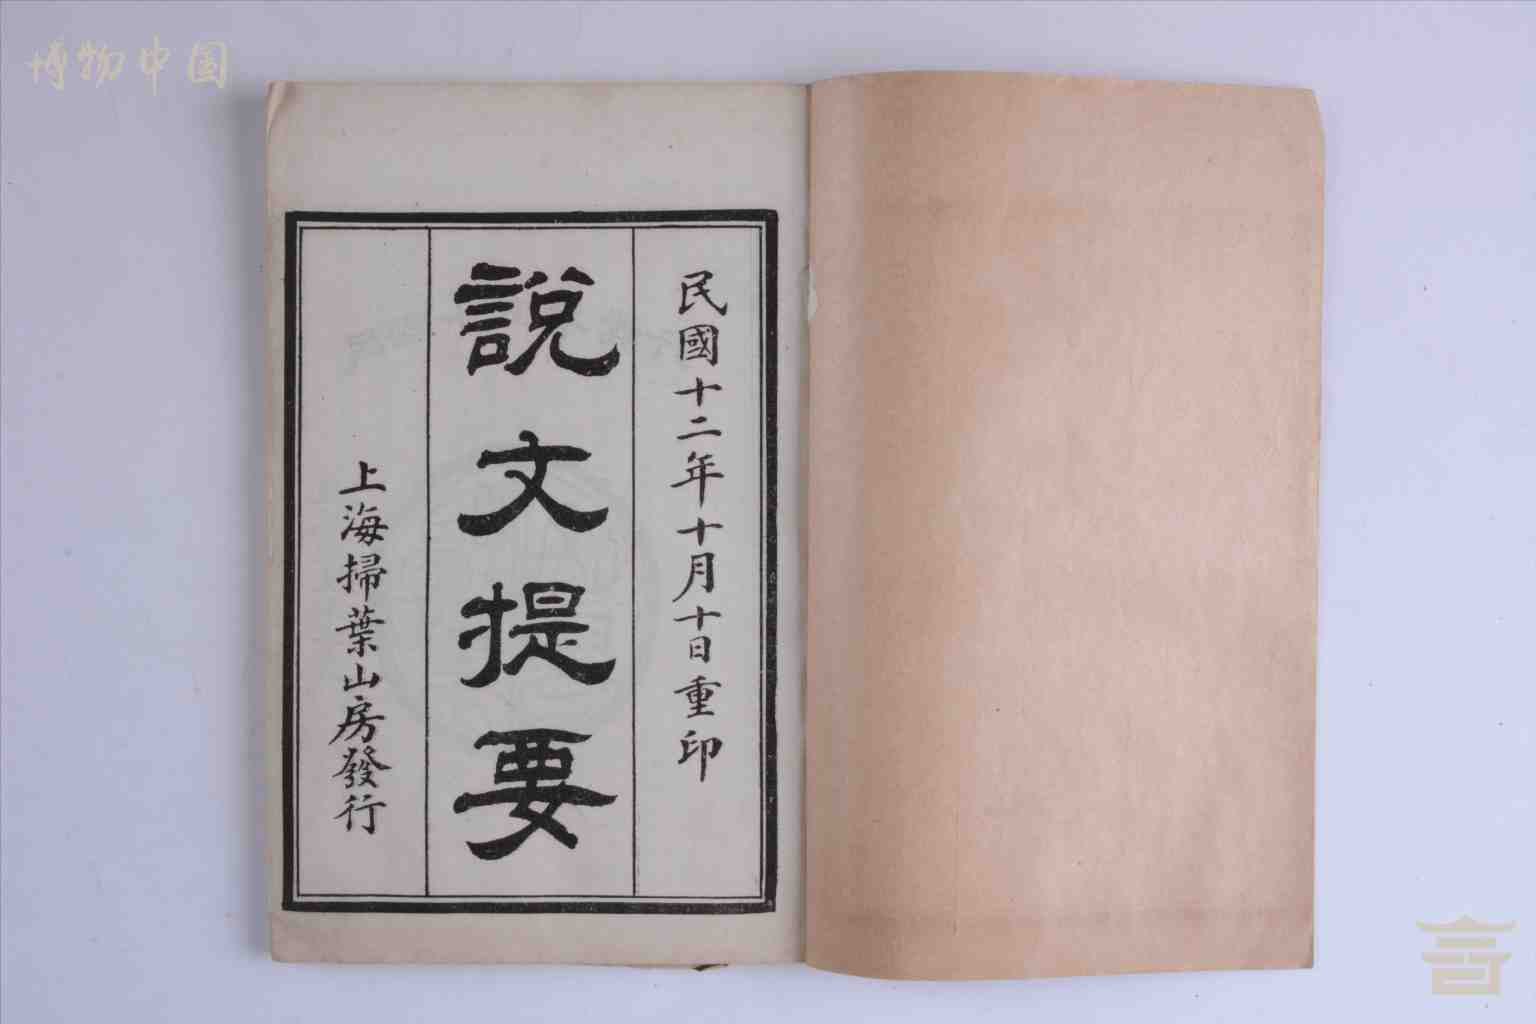 博物中国
民國十二年十月十日重印
說文提要
上海掃葉山房發行